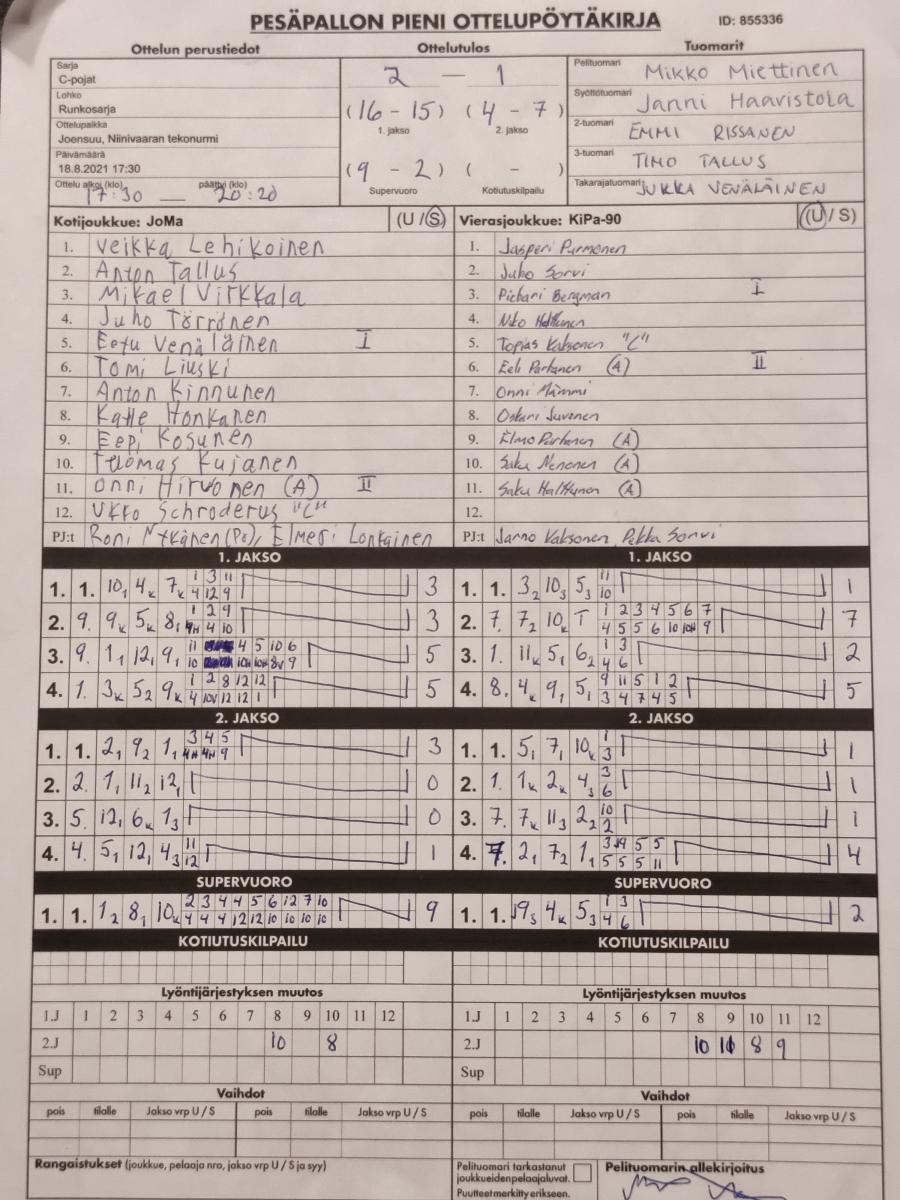 PESÄPALLON PIENI OTTELUPÖYTÄKIRJA ID: 855336
Ottelun perustiedot Ottelutulos Tuomarit
Sarja
C-pojat
Lohko
Runkosarja
Ottelupaikka
Joensuu, Niinivaaran tekonurmi
Päivämäärä
18.8.2021 17:30
Ottelu alkoi (klo) päättyi (klo)
17:30 — 20:20
2 — 1
(16 - 15) (4 - 7)
1. jakso 2. jakso
(9 - 2) ( - )
Supervuoro Kotiutuskilpailu
Pelituomari MIKKO MIETTINEN
Syöttötuomari JANNI HAAVISTOLA
2-tuomari EMMI RISSANEN
3-tuomari TIMO TALLUS
Takarajatuomari JUKKA VENÄLÄINEN
Kotijoukkue: JoMa (U / S) Vierasjoukkue: KiPa-90 (U / S)
1. Veikka Lehikoinen 1. Jasperi Purmonen
2. Anton Tallus 2. Juho Sorvi
3. Mikael Virkkala 3. Pichani Bergman I
4. Juho Törrönen 4. Niko
5. Eetu Venäläinen I 5. Topias Kaksonen "C"
6. Tomi Liuski 6. Eeli Partanen (A) II
7. Anton Kinnunen 7. Onni Mämmi
8. Kalle Honkanen 8. Oskari Juvonen
9. Eepi Kosunen 9. Elmo Partanen (A)
10. Tuomas Kujanen 10. Saku Nenonen (A)
11. Onni Hirvonen (A) II 11. Saku Halttunen (A)
12. Ukko Schroderus "C" 12.
PJ:t Roni (Pä), Elmeri Lonkainen PJ:t Jarno Kaksonen, Pekka Sorvi
1. JAKSO 1. JAKSO
1. 1. 10₁ 4ₖ 7ₖ 1 3 11 3 1. 1. 3₂ 10₃ 5₃ 11 1
4 12 9 10
2. 9. 9ₖ 5ₖ 8₁ 1 2 9 3 2. 7. 7₂ 10ₖ T 1 2 3 4 5 6 7 7
4H 4 10 4 5 5 6 10 10H 9
3. 9. 1₁ 12₁ 9₁ 11 4 5 10 6 5 3. 1. 11ₖ 5₁ 6₂ 1 3 2
10 10H 10H 8V 9 4 6
4. 1. 3ₖ 5₂ 9ₖ 1 2 8 12 12 5 4. 8. 4ₖ 9₁ 5₁ 9 11 5 1 2 5
4 10V 12 12 1 3 4 7 4 5
2. JAKSO 2. JAKSO
1. 1. 2₁ 9₂ 1₁ 3 4 5 3 1. 1. 5₁ 7₁ 10ₖ 1 1
4H 4H 9 3
2. 2. 1₁ 11₂ 12₁ 0 2. 1. 1ₖ 2ₖ 4₃ 3 1
6
3. 5. 12₁ 6ₖ 1₃ 0 3. 7. 7ₖ 11₃ 2₂ 10 1
2
4. 4. 5₁ 12₁ 4₃ 11 1 4. 7. 2₁ 7₂ 1₁ 5 5 4
12 5 5 5 11
SUPERVUORO SUPERVUORO
1. 1. 1₂ 8₁ 10ₖ 2 3 4 4 5 6 12 7 10 9 1. 1. 9₃ 4ₖ 5₃ 1 3 2
4 4 4 12 12 10 10 10 10 4 6
KOTIUTUSKILPAILU KOTIUTUSKILPAILU
Lyöntijärjestyksen muutos Lyöntijärjestyksen muutos
1.J 1 2 3 4 5 6 7 8 9 10 11 12 1.J 1 2 3 4 5 6 7 8 9 10 11 12
2.J 10 8 2.J 10 11 8 9
Sup Sup
Vaihdot Vaihdot
pois tilalle Jakso vrp U / S pois tilalle Jakso vrp U / S pois tilalle Jakso vrp U / S pois tilalle Jakso vrp U / S
Rangaistukset (joukkue, pelaaja nro, jakso vrp U / S ja syy)
Pelituomari tarkastanut
joukkueiden pelaajaluvat.
Puutteet merkitty erikseen.
Pelituomarin allekirjoitus